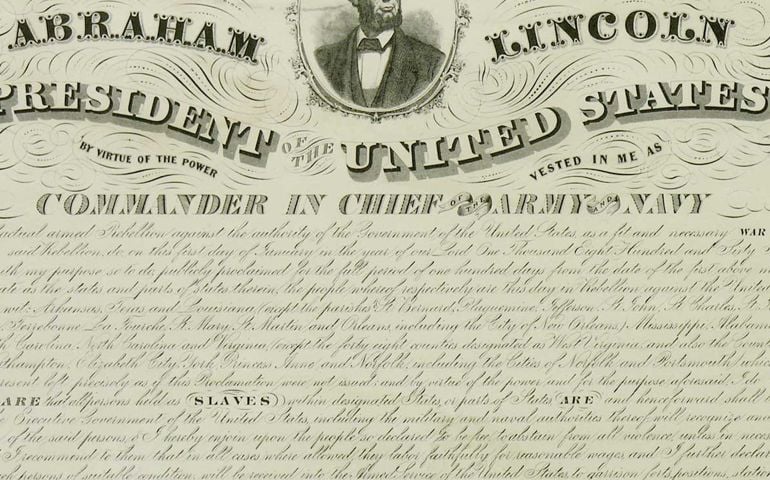 ABRAHAM LINCOLN
PRESIDENT OF THE UNITED STATES
BY VIRTUE OF THE POWER VESTED IN ME AS
COMMANDER IN CHIEF OF THE ARMY AND NAVY
actual armed Rebellion against the authority of the Government of the United States, as a fit and necessary WAR
said Rebellion, do, on this first day of January in the year of our Lord One Thousand Eight Hundred and Sixty
with my purpose so to do publicly proclaimed for the full period of one hundred days from the date of the first above
ate in the states and parts of states therein, the people whereof respectively are this day in Rebellion against the United
wit: Arkansas, Texas and Louisiana (except the parishes St. Bernard, Plaquemine, Jefferson, St. John, St. Charles, St.
Terrebonne La Fourche, St. Mary, St. Martin and Orleans, including the City of New Orleans) Mississippi, Alabama
th Carolina, North Carolina and Virginia, (except the forty eight counties designated as West Virginia, and also the Count
thampton, Elizabeth City, York, Princess Anne, and Norfolk, including the Cities of Norfolk and Portsmouth) whic
resent left precisely as if this Proclamation were not issued and by virtue of the power and for the purpose aforesaid, I do
ARE that all persons held as SLAVES within designated States, or parts of States ARE and henceforward shall
Executive Government of the United States, including the military and naval authorities thereof, will recognize and
of the said persons, & I hereby enjoin upon the people so declared to be free, to abstain from all violence, unless in neces
I recommend to them that in all cases where allowed, they labor faithfully for reasonable wages, and I further declar
ch persons of suitable condition, will be received into the Armed Service of the United States to garrison forts, positions, station